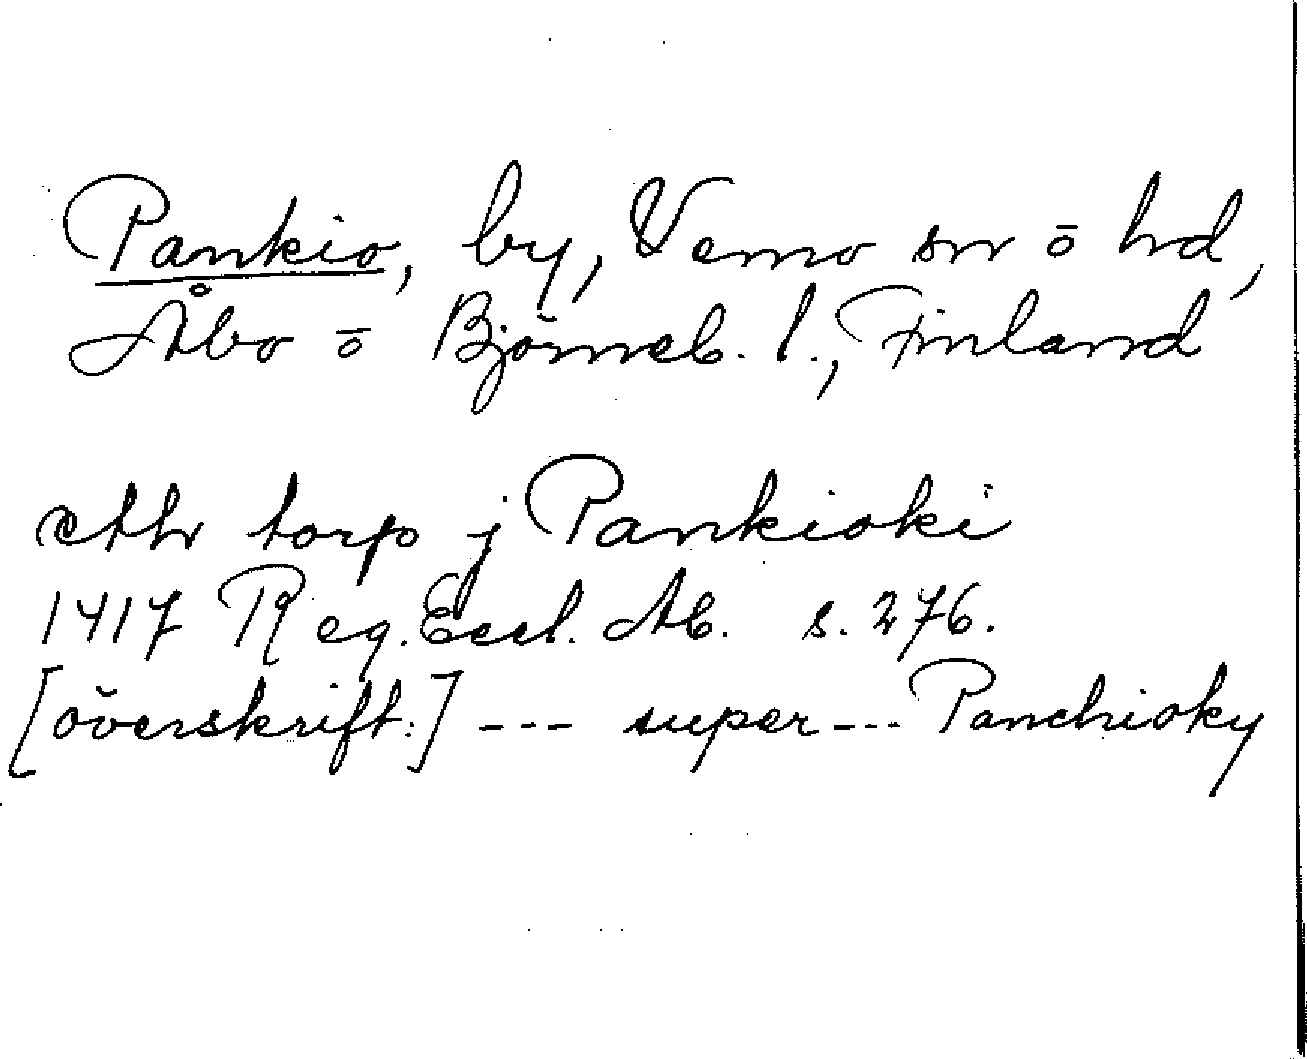 Pankio, by, Vemo sn ō hd,
Åbo ō Björneb. l., Finland
ett torp j Pankioki
1417 Reg. Eccl. Ab. s. 276.
[överskrift:] --- super --- Panchioky